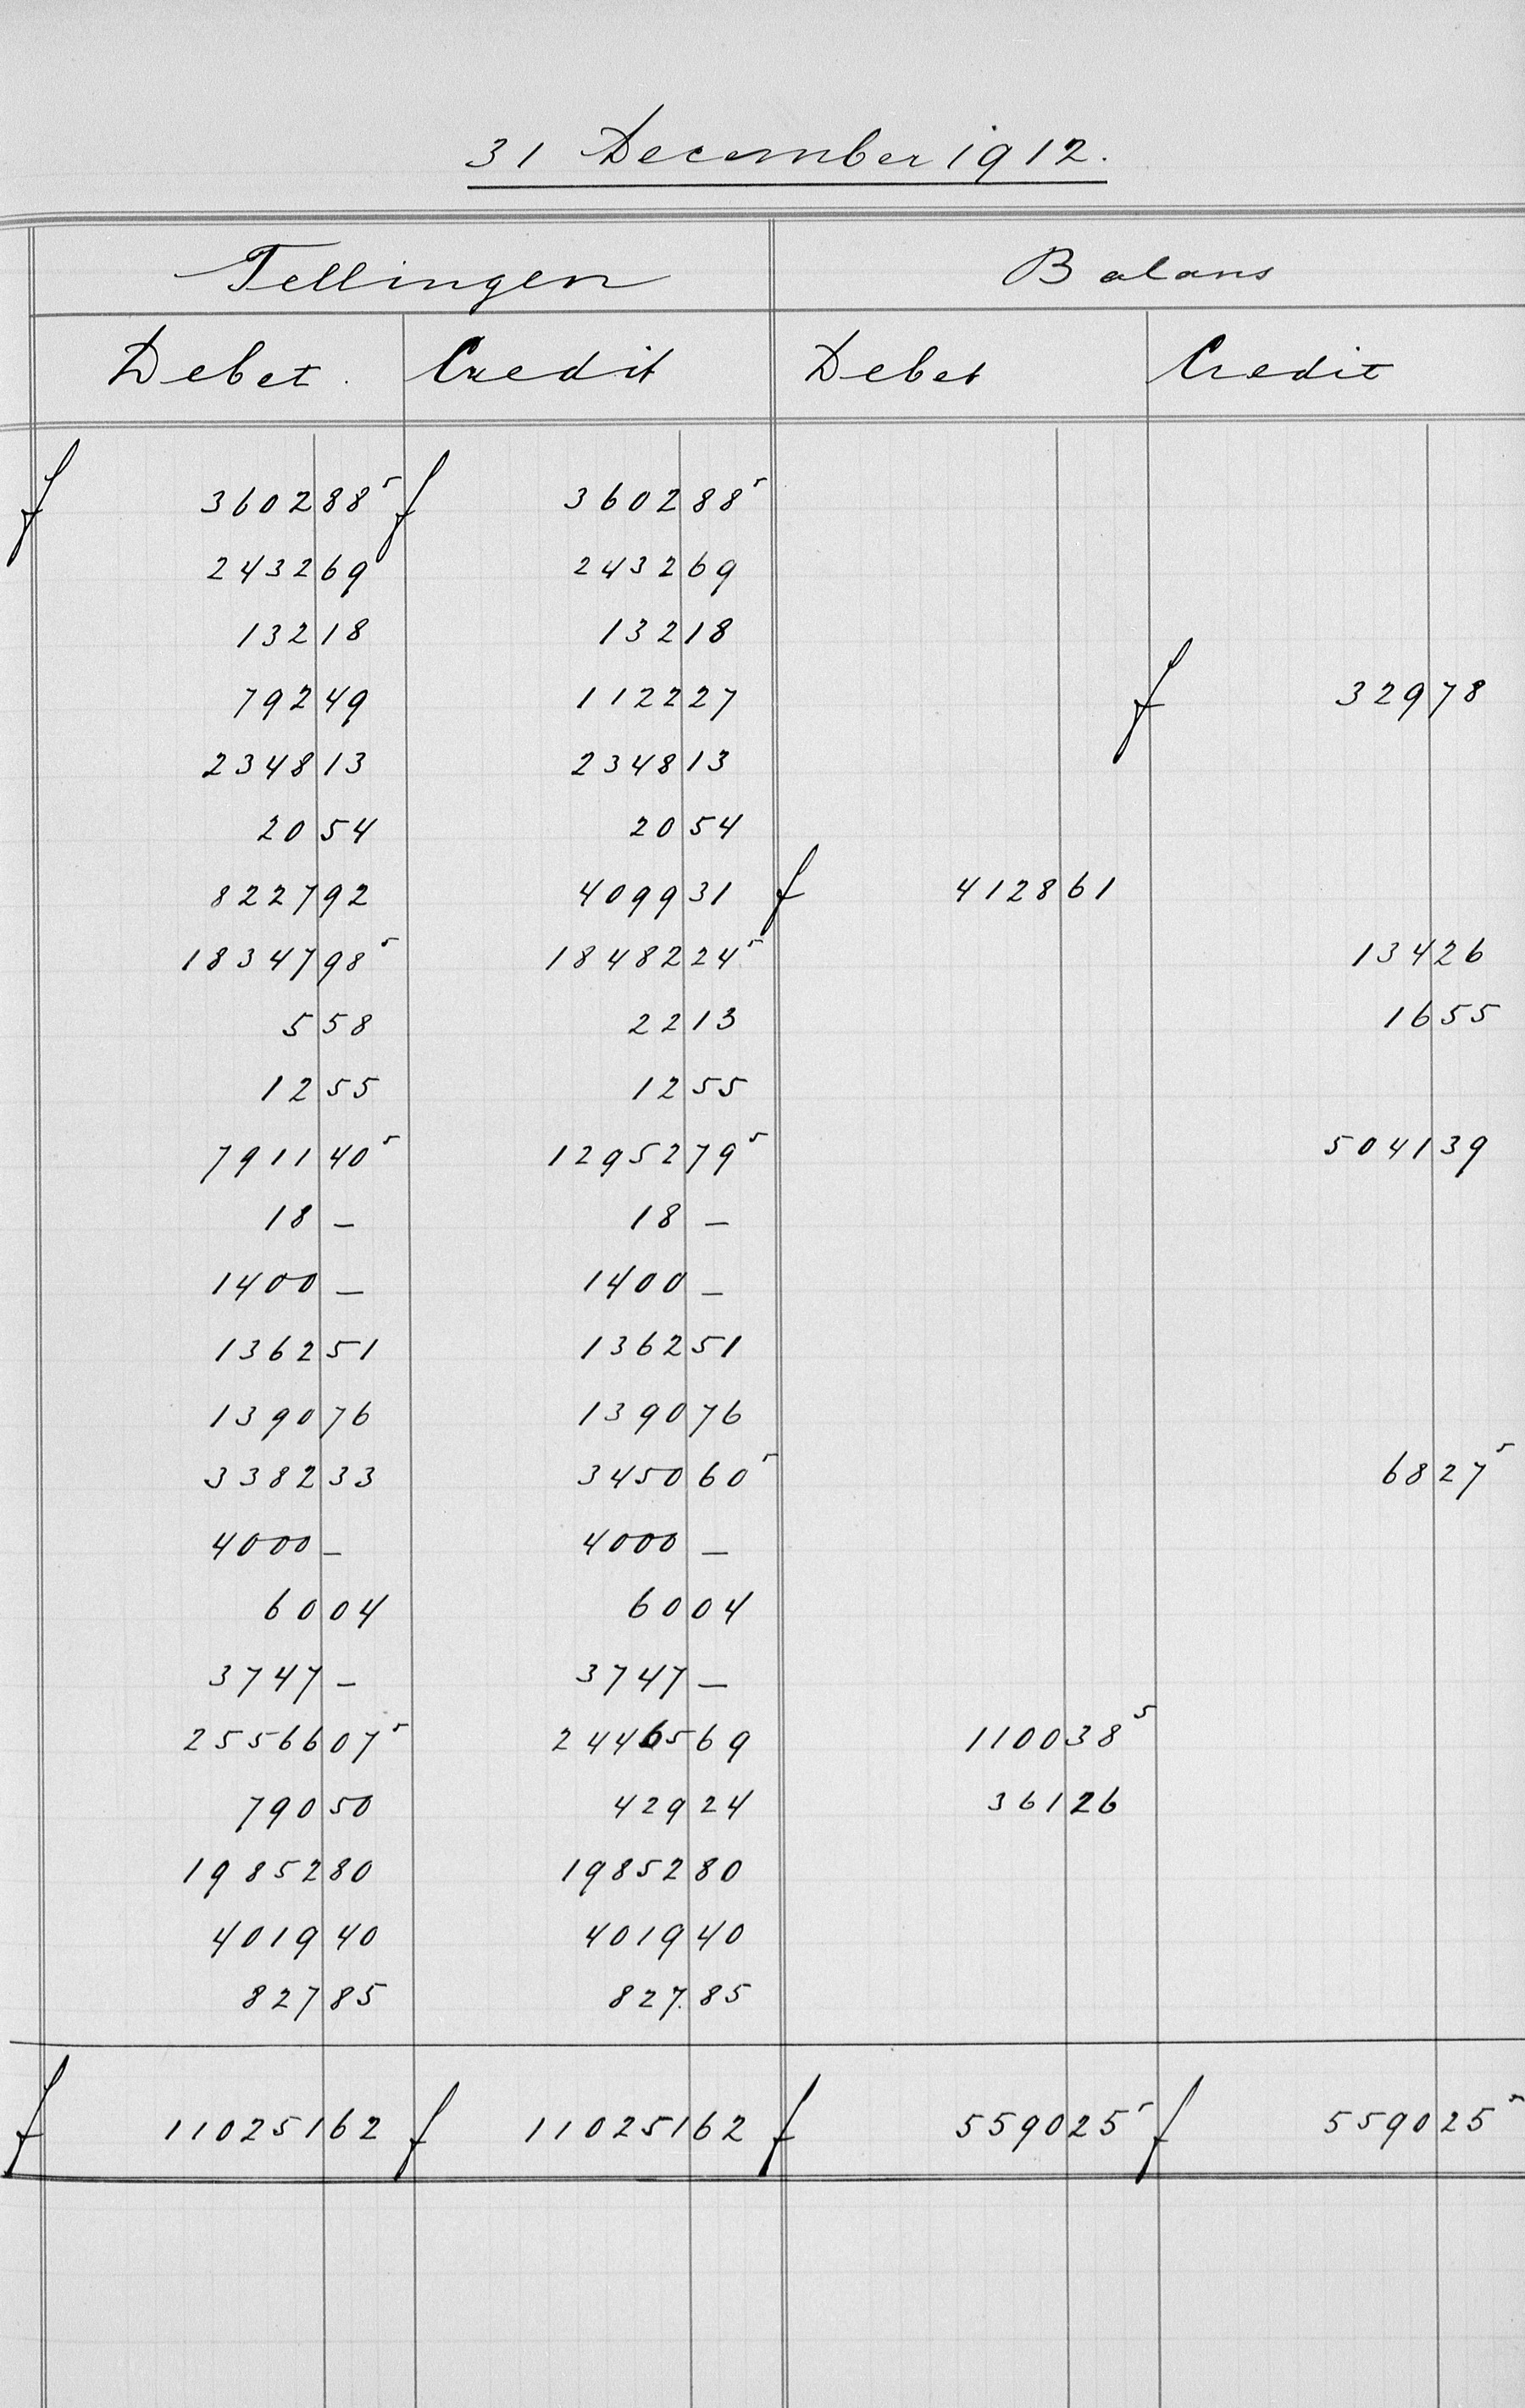 31 December 1912.
Tellingen Balans
Debet. Credit Debet Credit
f 3602 88⁵ f 3602 88⁵
2432 69 2432 69
132 18 132 18
792 49 1122 27 f 329 78
2348 13 2348 13
20 54 20 54
8227 92 4099 31 f 4128 61
18347 98⁵ 18482 24⁵ 134 26
5 58 22 13 16 55
12 55 12 55
7911 40⁵ 12952 79⁵ 5041 39
18 – 18 –
1400 – 1400 –
1362 51 1362 51
1390 76 1390 76
3382 33 3450 60⁵ 68 27⁵
4000 – 4000 –
60 04 60 04
3747 – 3747 –
25566 07⁵ 24465 69 1100 38⁵
790 50 429 24 361 26
19852 80 19852 80
4019 40 4019 40
827 85 827.85
f 110251 62 f 110251 62 f 5590 25⁵ f 5590 25⁵